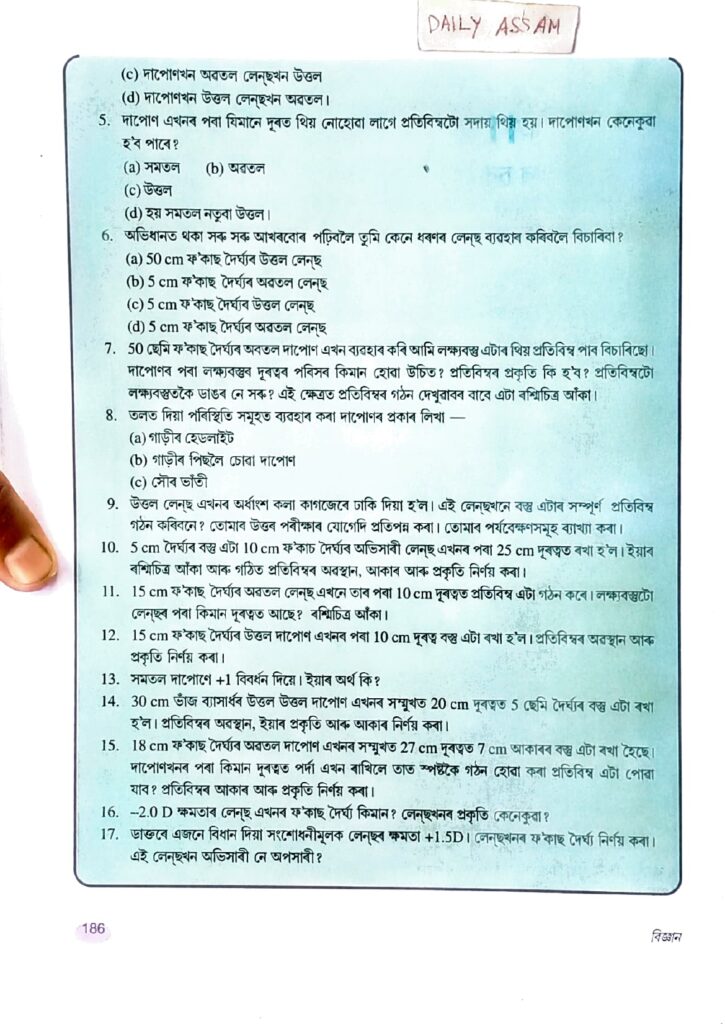 DAILY ASSAM
(c) দাপোণখন অৱতল লেন্‌ছখন উত্তল
(d) দাপোণখন উত্তল লেন্‌ছখন অৱতল।
5. দাপোণ এখনৰ পৰা যিমানে দূৰত থিয় নোহোৱা লাগে প্ৰতিবিম্বটো সদায় থিয় হয়। দাপোণখন কেনেকুৱা
হ'ব পাৰে?
(a) সমতল (b) অৱতল
(c) উত্তল
(d) হয় সমতল নতুবা উত্তল।
6. অভিধানত থকা সৰু সৰু আখৰবোৰ পঢ়িবলৈ তুমি কেনে ধৰণৰ লেন্‌ছ ব্যৱহাৰ কৰিবলৈ বিচাৰিবা?
(a) 50 cm ফ'কাছ দৈৰ্ঘ্যৰ উত্তল লেন্‌ছ
(b) 5 cm ফ'কাছ দৈৰ্ঘ্যৰ অৱতল লেন্‌ছ
(c) 5 cm ফ'কাছ দৈৰ্ঘ্যৰ উত্তল লেন্‌ছ
(d) 5 cm ফ'কাছ দৈৰ্ঘ্যৰ অৱতল লেন্‌ছ
7. 50 ছেমি ফ'কাছ দৈৰ্ঘ্যৰ অৱতল দাপোণ এখন ব্যৱহাৰ কৰি আমি লক্ষ্যবস্তু এটাৰ থিয় প্ৰতিবিম্ব পাব বিচাৰিছো।
দাপোণৰ পৰা লক্ষ্যবস্তুৰ দূৰত্বৰ পৰিসৰ কিমান হোৱা উচিত? প্ৰতিবিম্বৰ প্ৰকৃতি কি হ'ব? প্ৰতিবিম্বটো
লক্ষ্যবস্তুতকৈ ডাঙৰ নে সৰু? এই ক্ষেত্ৰত প্ৰতিবিম্বৰ গঠন দেখুৱাবৰ বাবে এটা ৰশ্মিচিত্ৰ আঁকা।
8. তলত দিয়া পৰিস্থিতি সমূহত ব্যৱহাৰ কৰা দাপোণৰ প্ৰকাৰ লিখা —
(a) গাড়ীৰ হেডলাইট
(b) গাড়ীৰ পিছলৈ চোৱা দাপোণ
(c) সৌৰ ভাঁতী
9. উত্তল লেন্‌ছ এখনৰ অৰ্ধাংশ কলা কাগজেৰে ঢাকি দিয়া হ'ল। এই লেন্‌ছখনে বস্তু এটাৰ সম্পূৰ্ণ প্ৰতিবিম্ব
গঠন কৰিবনে? তোমাৰ উত্তৰ পৰীক্ষাৰ যোগেদি প্ৰতিপন্ন কৰা। তোমাৰ পৰ্যবেক্ষণসমূহ ব্যাখ্যা কৰা।
10. 5 cm দৈৰ্ঘ্যৰ বস্তু এটা 10 cm ফ'কাচ দৈৰ্ঘ্যৰ অভিসাৰী লেন্‌ছ এখনৰ পৰা 25 cm দূৰত্বত ৰখা হ'ল। ইয়াৰ
ৰশ্মিচিত্ৰ আঁকা আৰু গঠিত প্ৰতিবিম্বৰ অৱস্থান, আকাৰ আৰু প্ৰকৃতি নিৰ্ণয় কৰা।
11. 15 cm ফ'কাছ দৈৰ্ঘ্যৰ অৱতল লেন্‌ছ এখনে তাৰ পৰা 10 cm দূৰত্বত প্ৰতিবিম্ব এটা গঠন কৰে। লক্ষ্যবস্তুটো
লেন্‌ছৰ পৰা কিমান দূৰত্বত আছে? ৰশ্মিচিত্ৰ আঁকা।
12. 15 cm ফ'কাছ দৈৰ্ঘ্যৰ উত্তল দাপোণ এখনৰ পৰা 10 cm দূৰত্ব বস্তু এটা ৰখা হ'ল। প্ৰতিবিম্বৰ অৱস্থান আৰু
প্ৰকৃতি নিৰ্ণয় কৰা।
13. সমতল দাপোণে +1 বিবৰ্ধন দিয়ে। ইয়াৰ অৰ্থ কি?
14. 30 cm ভাঁজ ব্যাসাৰ্ধৰ উত্তল উত্তল দাপোণ এখনৰ সন্মুখত 20 cm দূৰত্বত 5 ছেমি দৈৰ্ঘ্যৰ বস্তু এটা ৰখা
হ'ল। প্ৰতিবিম্বৰ অৱস্থান, ইয়াৰ প্ৰকৃতি আৰু আকাৰ নিৰ্ণয় কৰা।
15. 18 cm ফ'কাছ দৈৰ্ঘ্যৰ অৱতল দাপোণ এখনৰ সন্মুখত 27 cm দূৰত্বত 7 cm আকাৰৰ বস্তু এটা ৰখা হৈছে।
দাপোণখনৰ পৰা কিমান দূৰত্বত পৰ্দা এখন ৰাখিলে তাত স্পষ্টকৈ গঠন হোৱা কৰা প্ৰতিবিম্ব এটা পোৱা
যাব? প্ৰতিবিম্বৰ আকাৰ আৰু প্ৰকৃতি নিৰ্ণয় কৰা।
16. –2.0 D ক্ষমতাৰ লেন্‌ছ এখনৰ ফ'কাছ দৈৰ্ঘ্য কিমান? লেন্‌ছখনৰ প্ৰকৃতি কেনেকুৱা?
17. ডাক্তৰে এজনে বিধান দিয়া সংশোধনীমূলক লেন্‌ছৰ ক্ষমতা +1.5D। লেন্‌ছখনৰ ফ'কাছ দৈৰ্ঘ্য নিৰ্ণয় কৰা।
এই লেন্‌ছখন অভিসাৰী নে অপসাৰী?
186
বিজ্ঞান